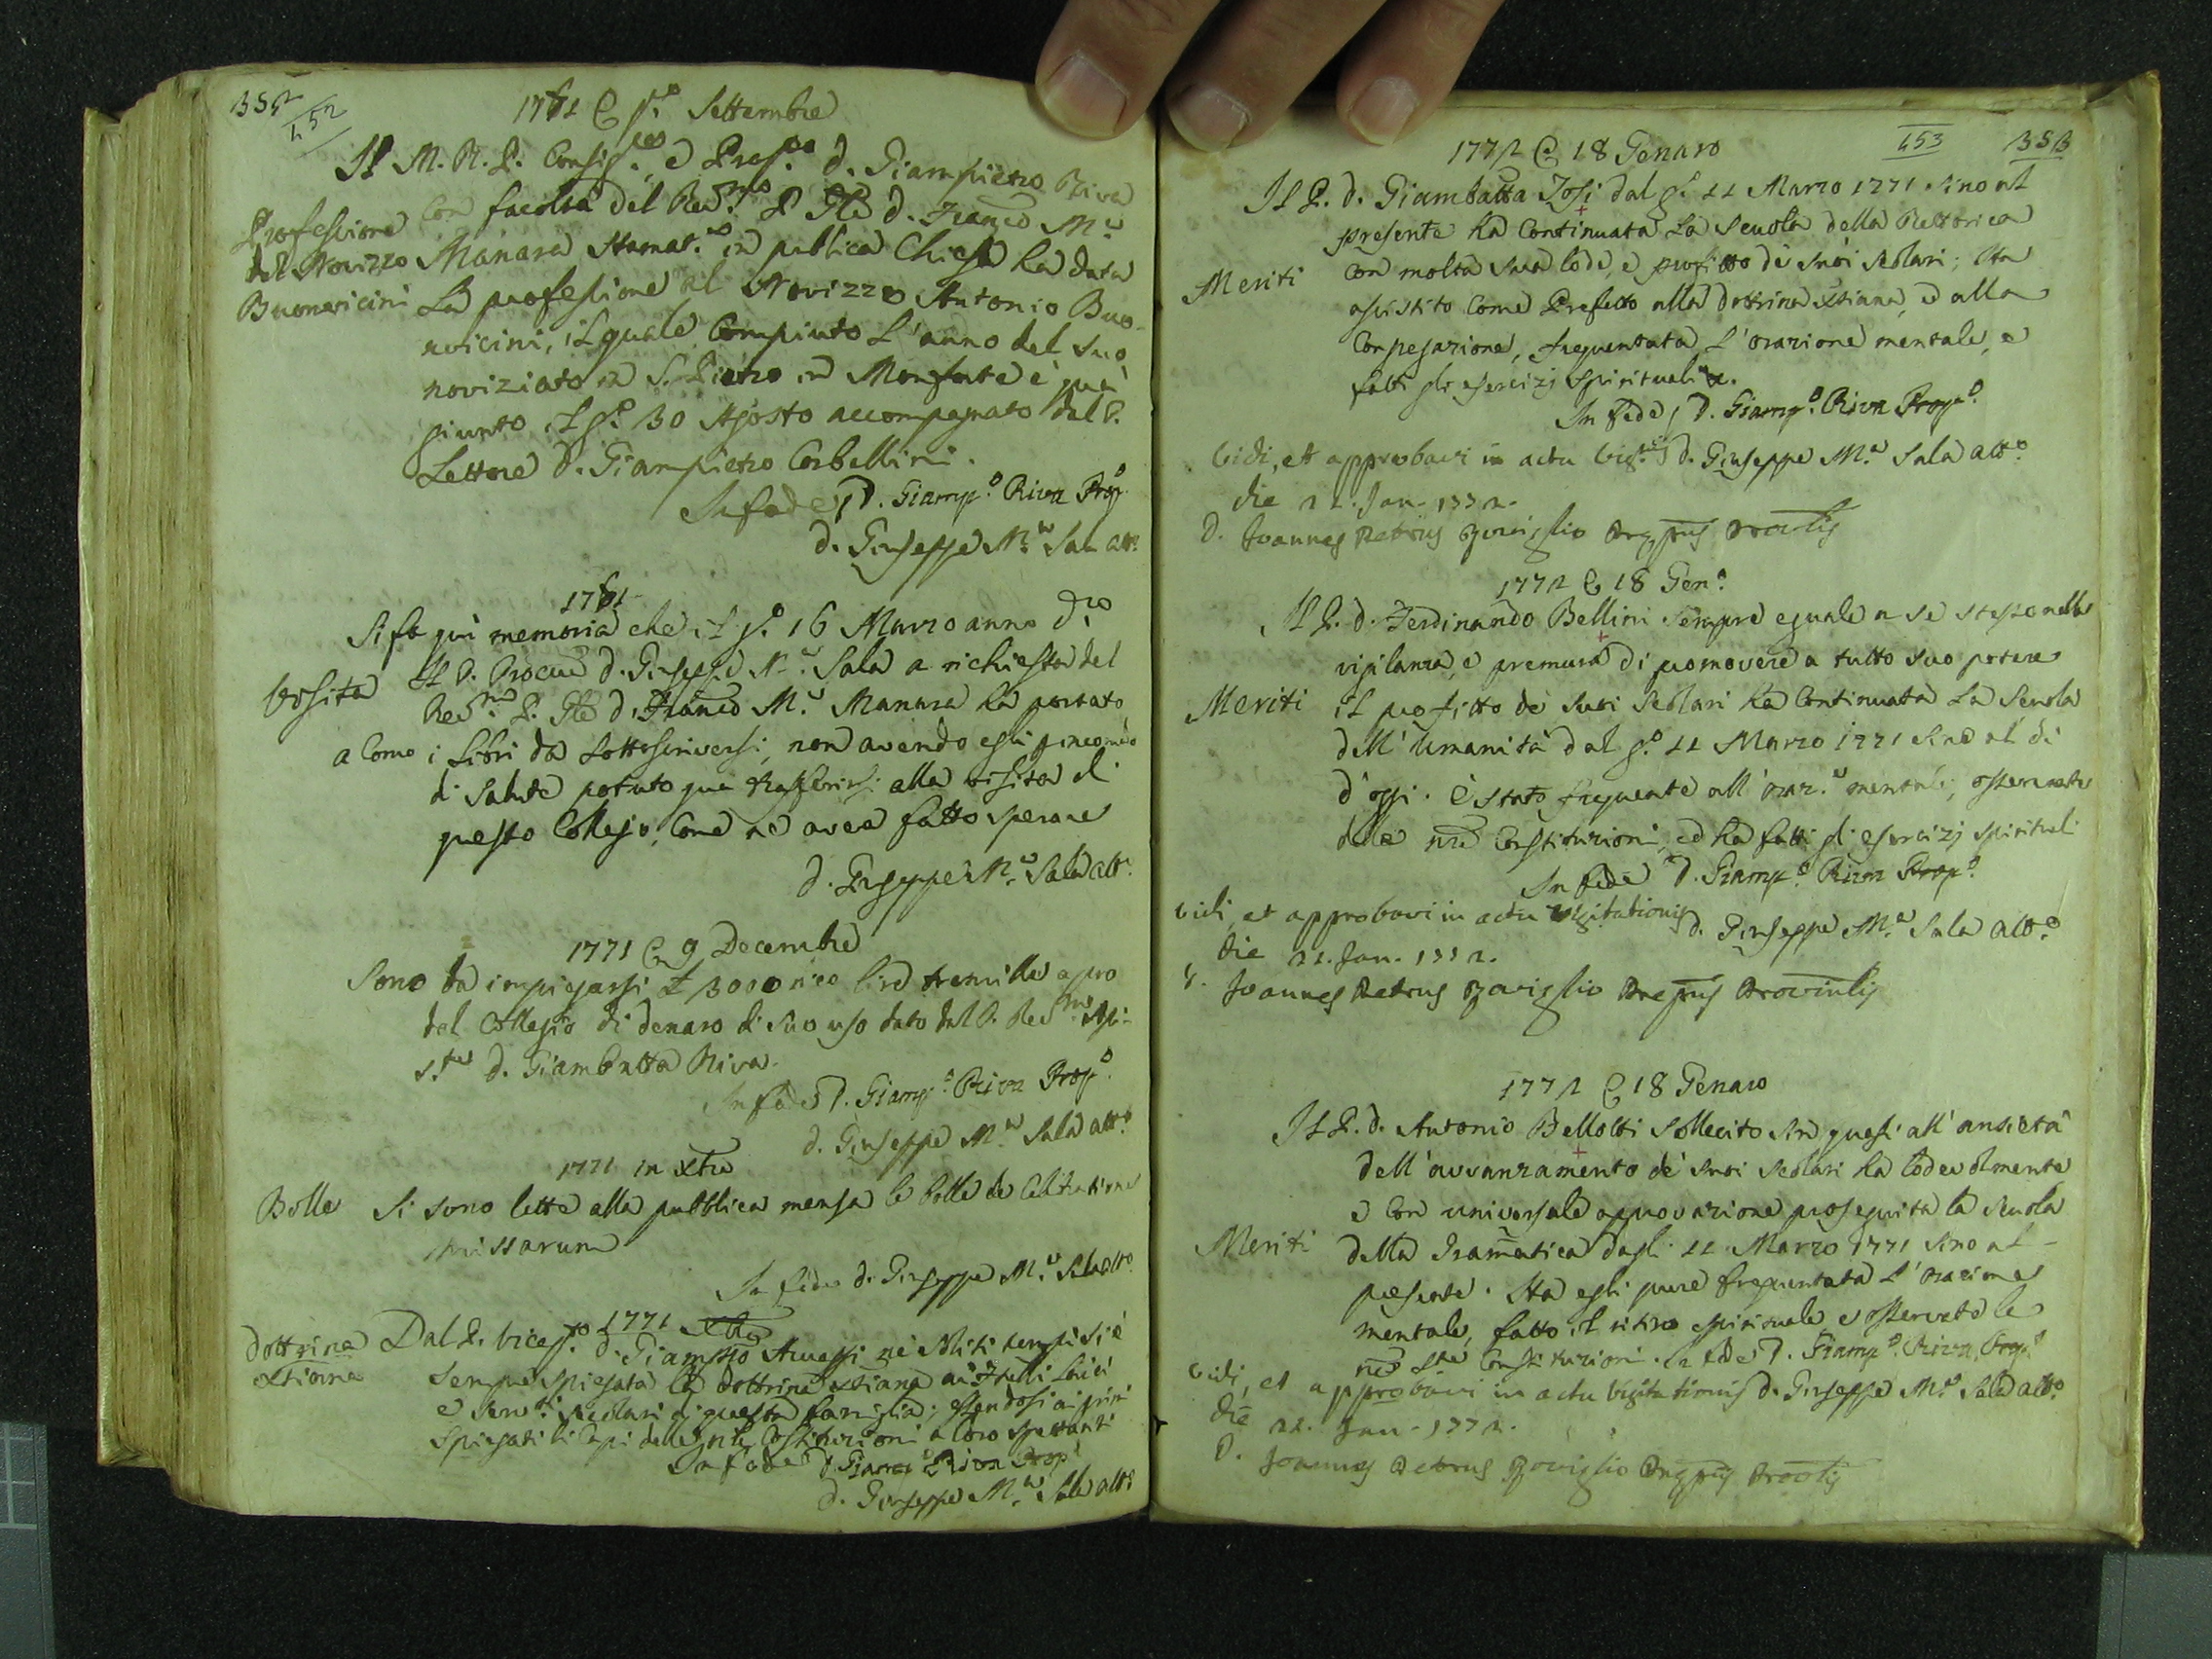 352
452
1771 @ p.º Settembre
Il M. R. P. Consig.re e Prep.to d. Giampietro Riva
Professione
del Novizzo
Buonvicini
Con facoltà del Red.mo P. Gle d. Franco M.a
Manara Stamat.a in publica Chiesa ha data
La professione al Novizzo Antonio Buo-
nvicini, il quale compiuto l'anno del suo
noviziato in S. Pietro in Monforte è quà
giunto il g.º 30 Agosto accompagnato dal P.
Lettore d. Giampietro Corbellini.
In fede D. Giamp.º Riva Prep.º
d. Giuseppe M.a Sala att.º
1771
Si fa quì memoria che il g.º 16 Marzo anno d.º
Visita
Il P. Procur d. Giuseppe M.a Sala a richiesta del
Red.mo P. Gle d. Franco M.a Manara ha portato
a Como i Libri da sottoscriversi, non avendo egli p incomodo
di salute potuto quà trasferirsi alla visita di
questo Collegio, come ne avea fatto sperare
d. Giuseppe M.a Sala att.º
1771 @ 9 Decembre
Sono da impiegarsi £ 3000 dico lire tremille a pro
del Collegio di denaro di suo uso dato dal P. Red.mo Assi-
s.te d. Giambatta Riva.
In fede D. Giamp.º Riva Prep.º
d. Giuseppe M.a Sala att.º
1771 in Xbre
Bolle
Si sono lette alla pubblica mensa le bolle de Celebratione
Missarum
In fede d. Giuseppe M.a Sala att.º
1771 Xbre
Dottrina
Xtiana
Dal P. Vicep.to d. Giampro Avvessi ne soliti tempi si è
sempre spiegata la dottrina Xtiana ai Fratelli laici
e serv.ti secolari di questa famiglia; essendosi ai primi
spiegati li Capi delle nre Costituzioni a loro spettanti
In fede D. Giamp.º Riva Prep.º
d. Giuseppe M.a Sala att.º
453
353
1772 @ 18 Genaro
Il P. d. Giambatta Josi dal g.º 11 Marzo 1771 sino al
presente ha Continuata La Scuola della Rettorica
Meriti
Con molta sua lode, e profitto de suoi Scolari; Ha
assistito Come Prefetto alla dottrina Xtiana, e alla
Congregazione, frequentata L'orazione mentale, e
fatti gli esercizj spirituali.
In fede D. Giamp.º Riva Prep.º
Vidi, et approbavi in actu Visit.is d. Giuseppe M.a Sala att.º
die 22. Jan. 1772.
D. Joannes Petrus Roviglio Prepus Provlis
1772 @ 18 Gen.º
Il P. d. Ferdinando Bellini sempre eguale a se stesso nella
vigilanza, e premura di promovere a tutto suo potere
Meriti
il profitto de suoi Scolari ha Continuata La Scuola
dell'umanità dal g.º 11 Marzo 1771 sino al di
d'oggi. È stato frequente all'oraz.e mentale, osservante
delle nre Constituzioni, ed ha fatti gli esercizj spirituali
In fede D. Giamp.º Riva Prep.º
Vidi, et approbavi in actu Visitationis d. Giuseppe M.a Sala att.º
die 22. Jan. 1772.
D. Joannes Petrus Roviglio Prepus Provinlis
1772 @ 18 Genaro
Il P. d. Antonio Bellotti Sollecito sin quasi all'ansietà
dell'avvanzamento de' suoi Scolari ha lodevolmente
e con universale approvazione proseguita la Scuola
Meriti
della Gramatica dagli 11 Marzo 1771 sino al
presente. Ha egli pure frequentata L'orazione
mentale, fatto il ritiro spirituale e osservate le
nre Ste Constituzioni. In fede D. Giamp.º Riva Prep.º
Vidi, et approbavi in actu Visitationis d. Giuseppe M.a Sala att.º
die 22. Jan. 1772.
D. Joannes Petrus Roviglio Prepus Provlis